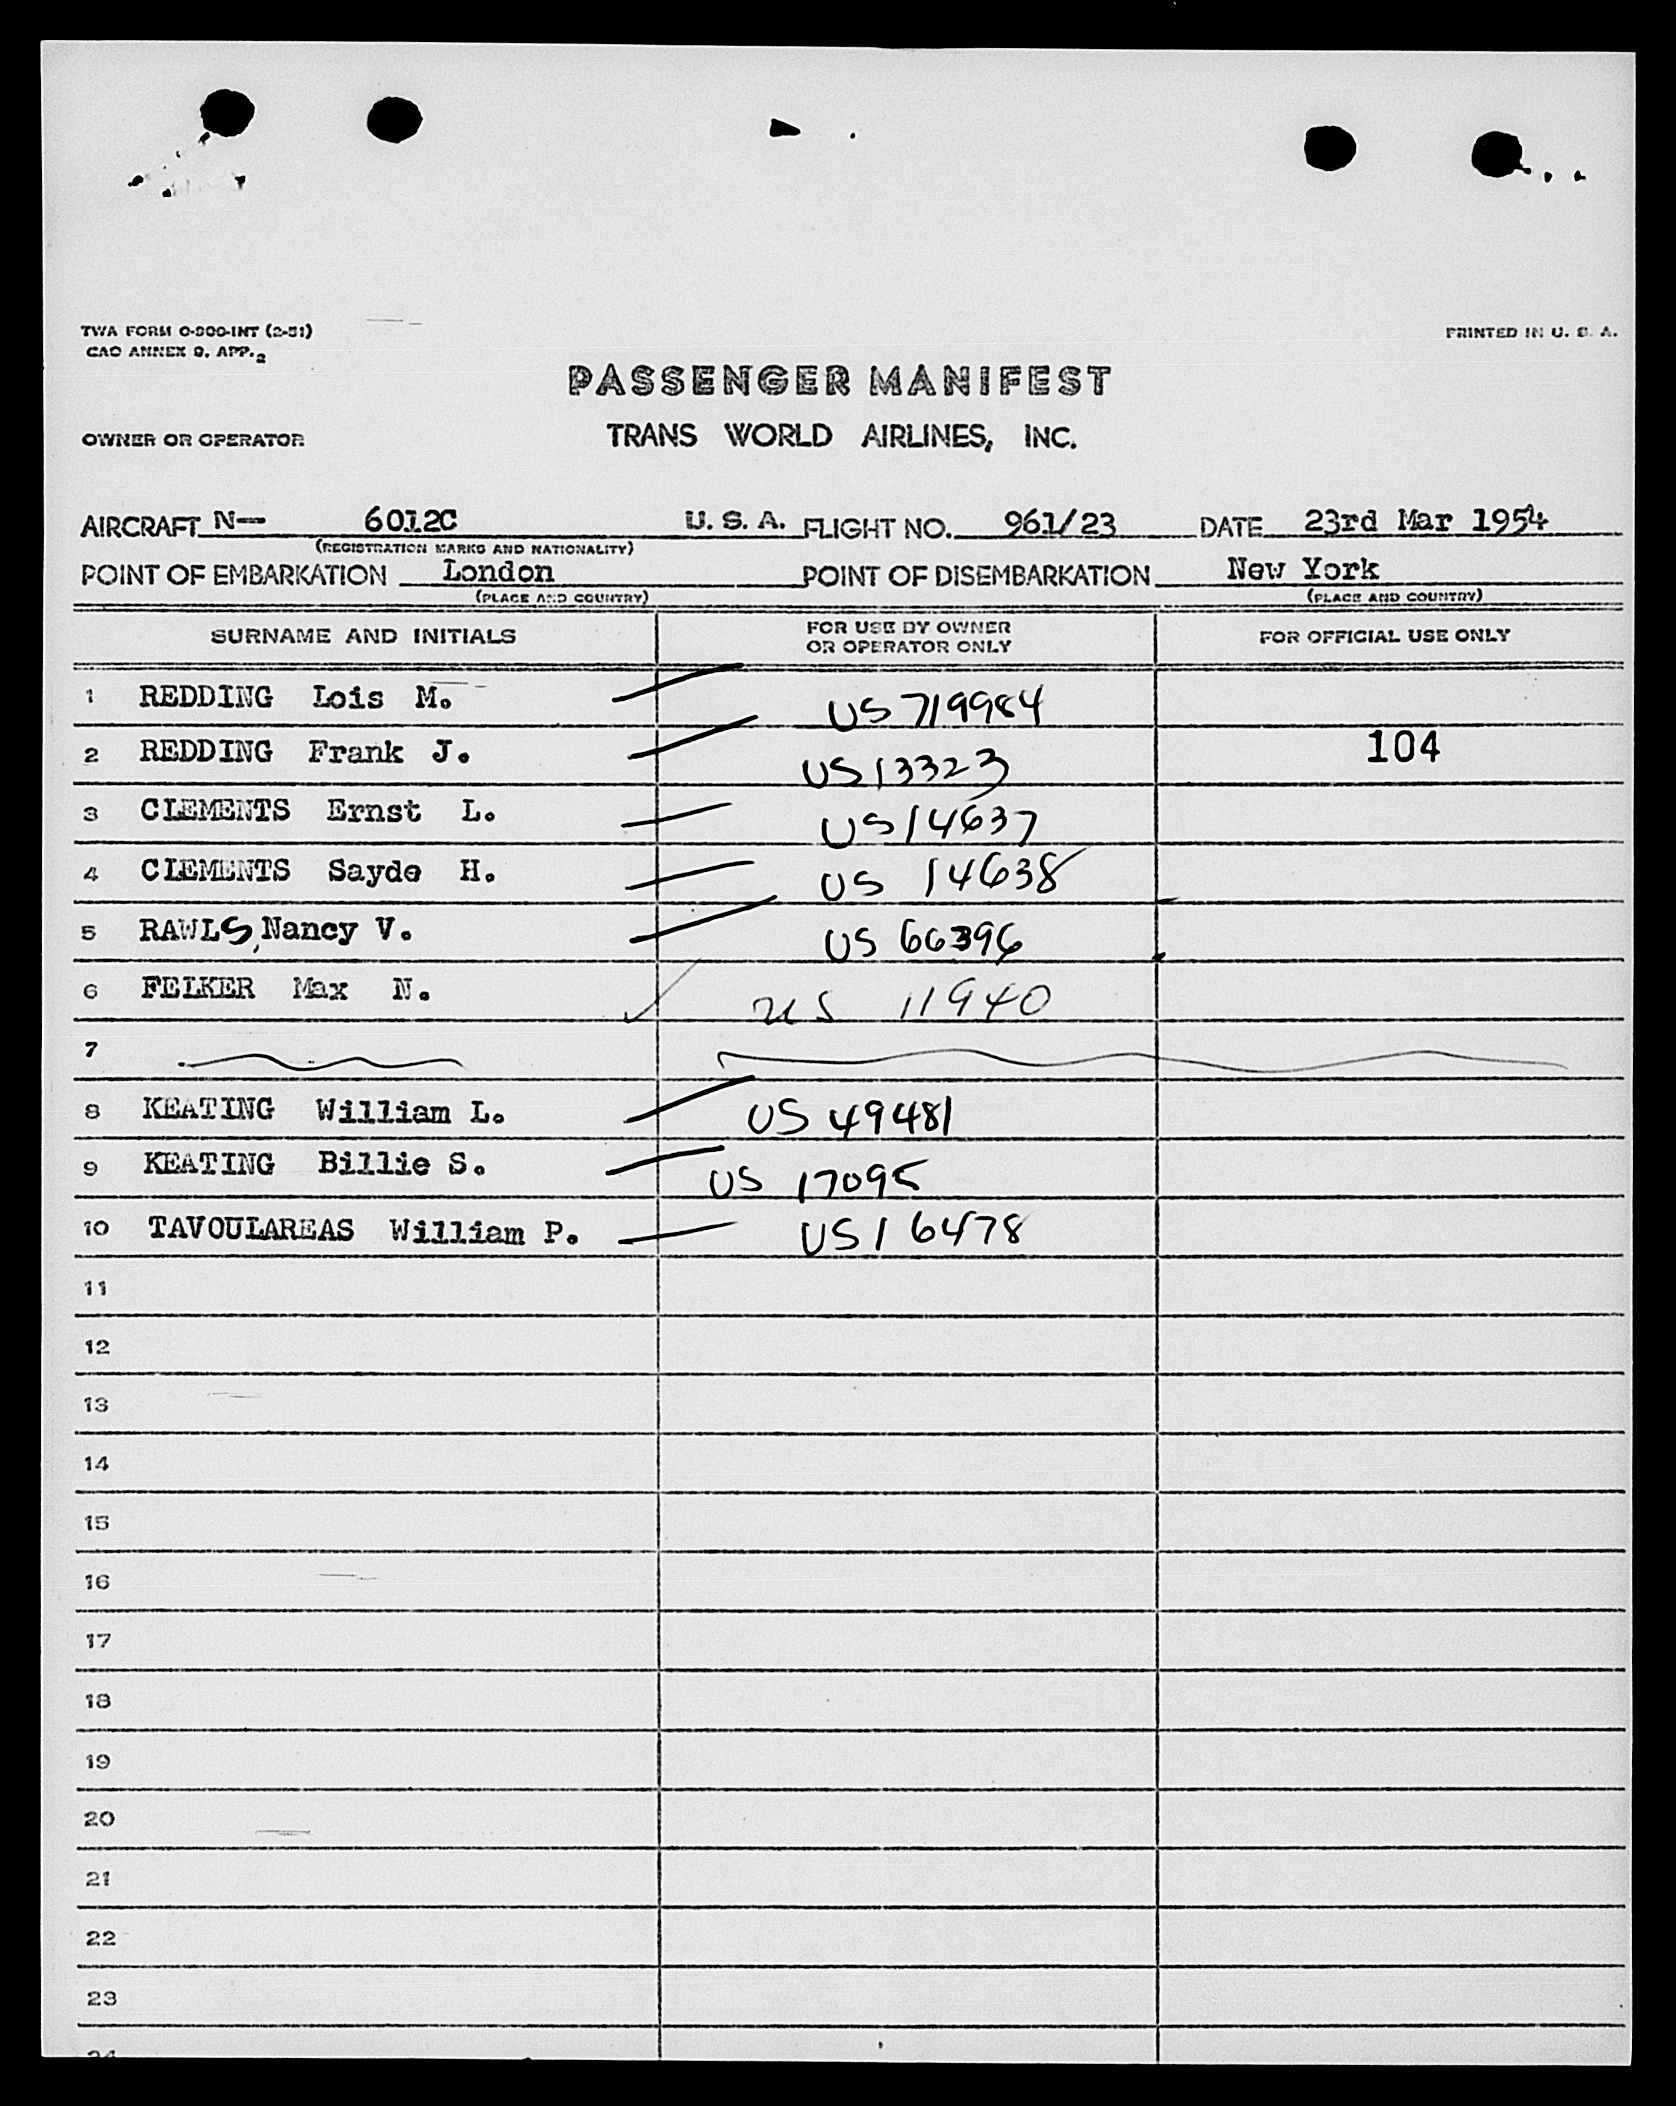 TWA FORM O-900-INT (2-51)
PRINTED IN U. S. A.
CAO ANNEX 9, APP. 2
PASSENGER MANIFEST
OWNER OR OPERATOR
TRANS WORLD AIRLINES, INC.
AIRCRAFT N-- 6012C U. S. A. FLIGHT NO. 961/23 DATE 23rd Mar 1954
(REGISTRATION MARKS AND NATIONALITY)
POINT OF EMBARKATION London POINT OF DISEMBARKATION New York
(PLACE AND COUNTRY) (PLACE AND COUNTRY)
SURNAME AND INITIALS FOR USE BY OWNER OR OPERATOR ONLY FOR OFFICIAL USE ONLY
1 REDDING Lois M. US 719984
2 REDDING Frank J. US 13323 104
3 CLEMENTS Ernst L. US 14637
4 CLEMENTS Sayde H. US 14638
5 RAWLS, Nancy V. US 66396
6 FELKER Max N. US 11940
7
8 KEATING William L. US 49481
9 KEATING Billie S. US 17095
10 TAVOULAREAS William P. US 16478
11
12
13
14
15
16
17
18
19
20
21
22
23